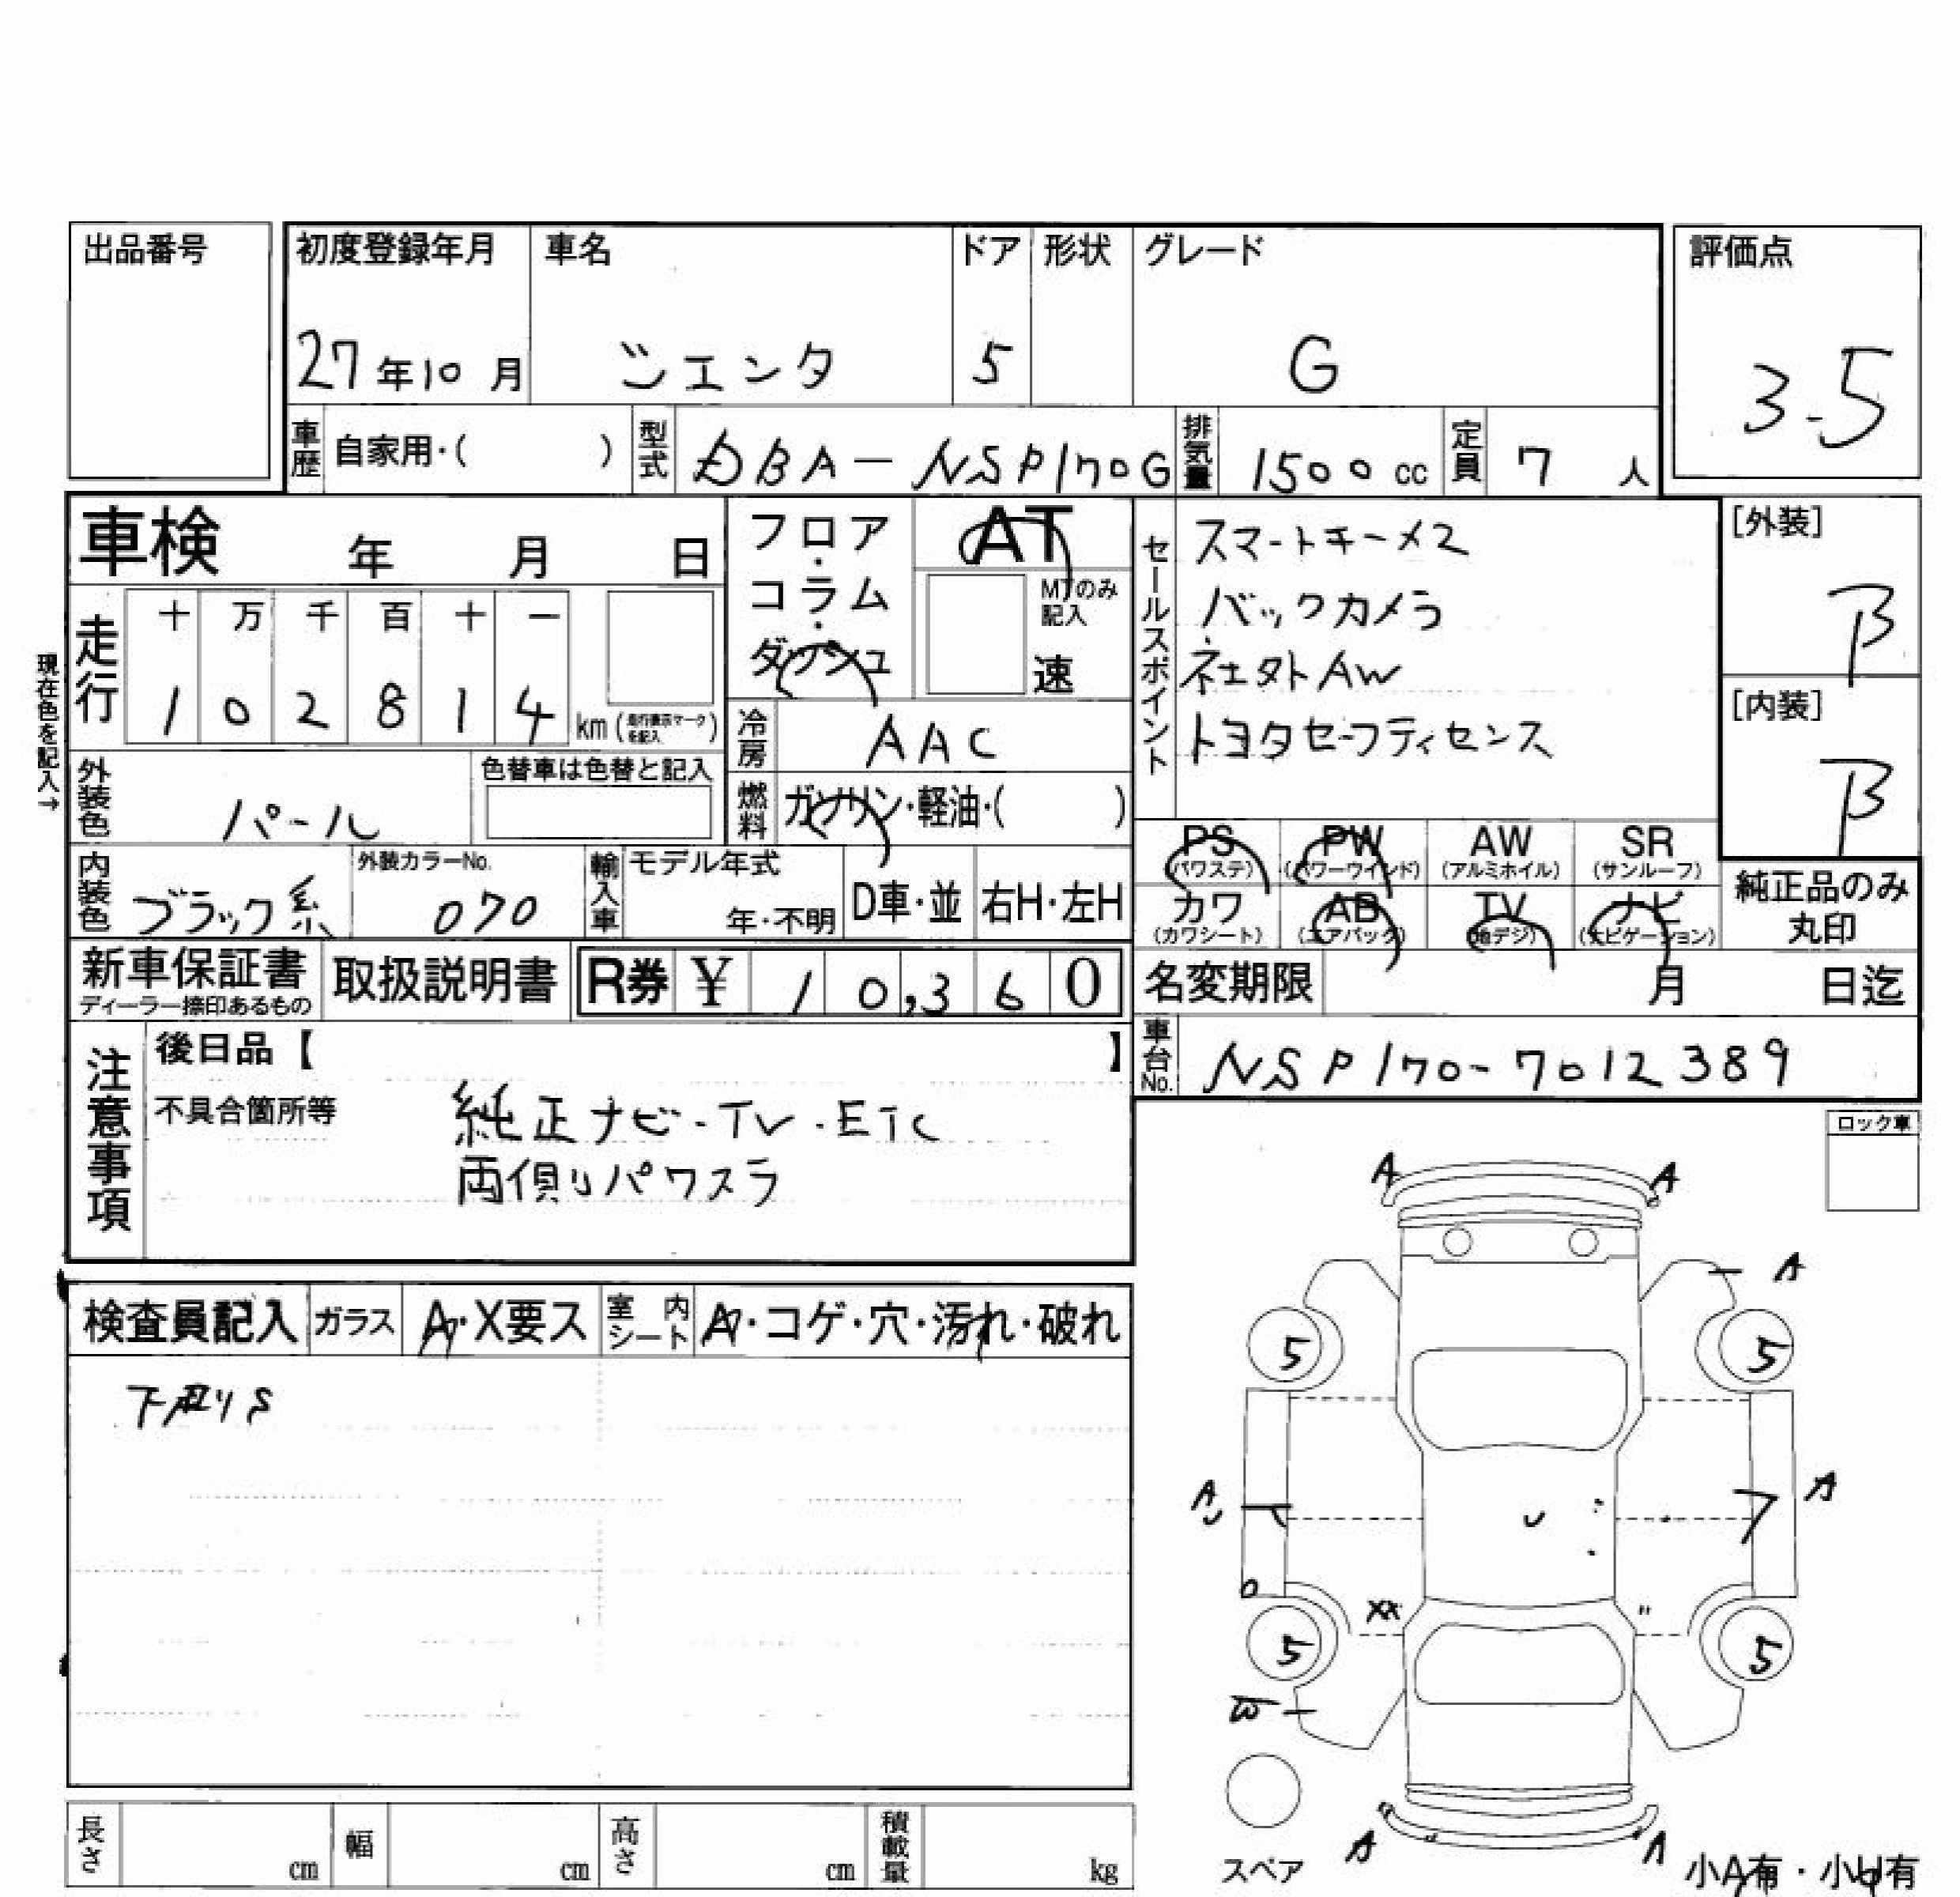 出品番号
初度登録年月 車名 ドア 形状 グレード 評価点
27年10月 シエンタ 5 G 3.5
車歴 自家用・( ) 型式 DBA-NSP170G 排気量 1500cc 定員 7人
車検 年 月 日
フロア・コラム・ダッシュ AT
MTのみ記入
速
セールスポイント
スマートキーメ2
バックカメラ
社外AW
トヨタセーフティセンス
[外装] B
[内装] B
現在色を記入→
走行 十 万 千 百 十 一
1 0 2 8 1 4 km(走行表示マークを記入)
冷房 AAC
外装色 パール 色替車は色替と記入
燃料 ガソリン・軽油・( )
内装色 ブラック系 外装カラーNo. 070
輸入車 モデル年式 年・不明 D車・並 右H・左H
PS (パワステ) PW (パワーウインド) AW (アルミホイル) SR (サンルーフ)
カワ (カワシート) AB (エアバック) TV (地デジ) ナビ (ナビゲーション)
純正品のみ丸印
新車保証書 ディーラー捺印あるもの 取扱説明書 R券 ¥ 10,360
名変期限 月 日迄
車台No. NSP170-7012389
注意事項
後日品【 】
不具合箇所等
純正ナビ・TV・ETC
両側パワスラ
ロック車
検査員記入 ガラス A・X要ス 室内シート A・コゲ・穴・汚れ・破れ
下廻りS
A A
A
5 5
A
U
A
U
XX
5 5
W
A A
スペア
小A有・小U有
長さ cm 幅 cm 高さ cm 積載量 kg